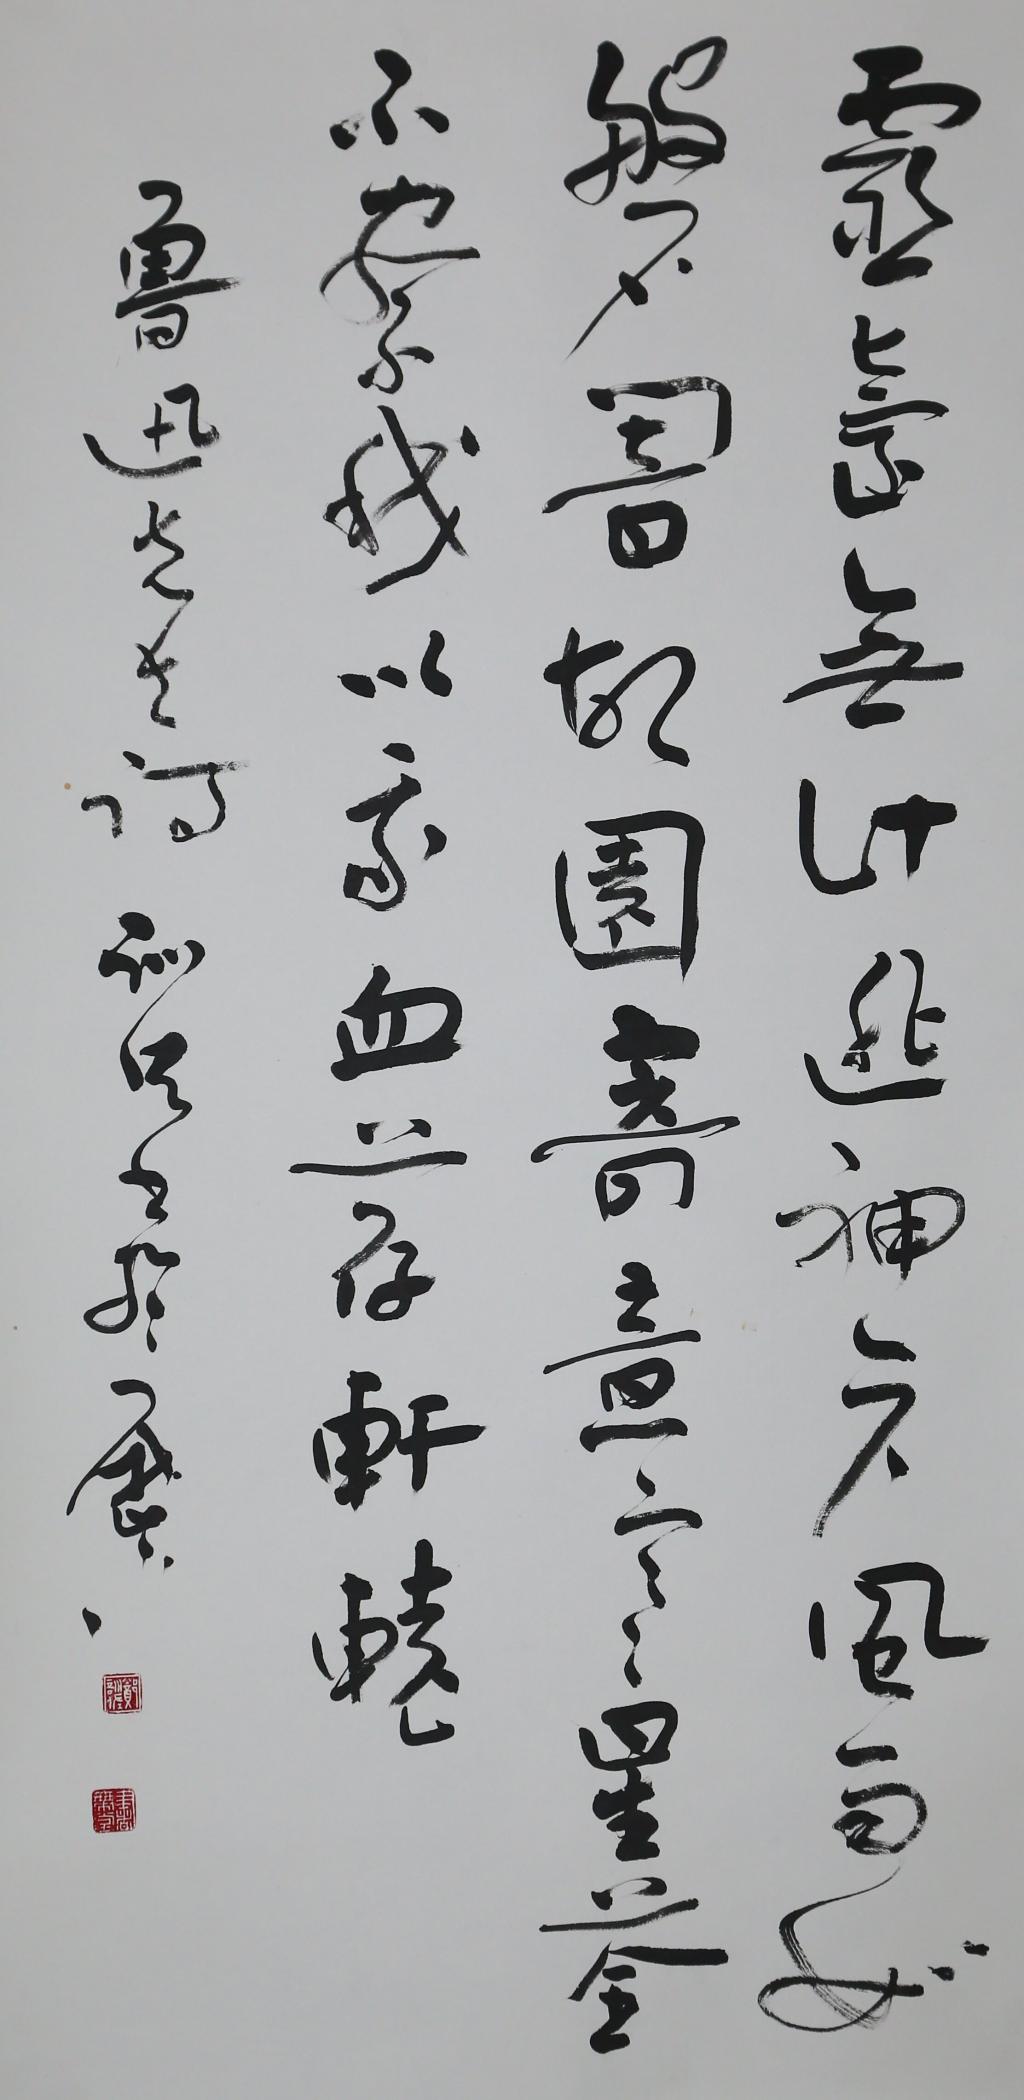 靈臺無計逃神矢風雨如
磐闇故園寄意寒星荃
不察我以我血荐軒轅
魯迅先生詩 訓書於